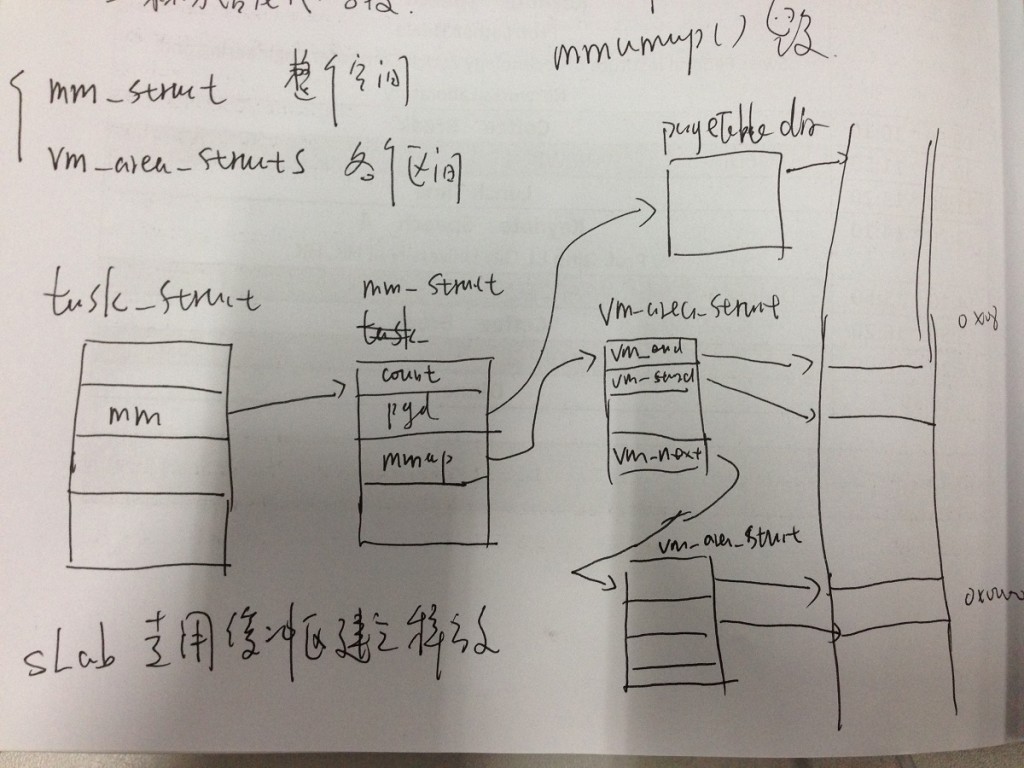 mmunmap() 释放
mm_struct 整个空间
vm_area_structs 各个区间
pageTable dir
task_struct
mm
mm_struct
count
pgd
mmap
vm_area_struct
vm_end
vm_start
vm_next
0x08
vm_area_struct
sLab 专用缓冲区建立释放